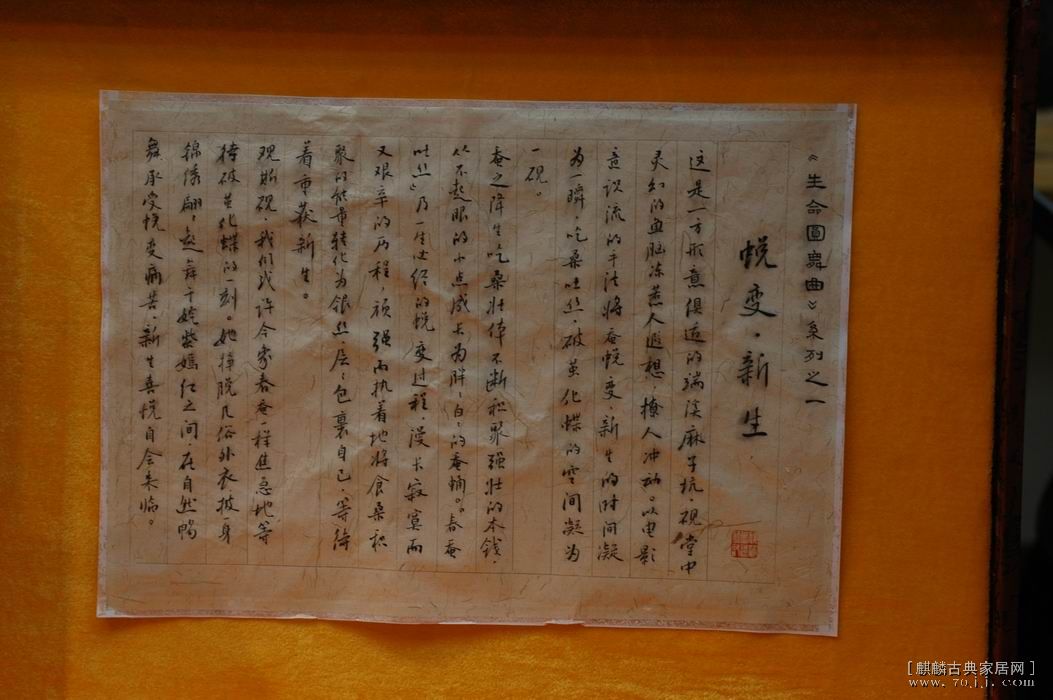 《生命圆舞曲》系列之一
蜕变·新生
这是一方形意俱适的端溪麻子坑,砚堂中
灵幻的鱼脑冻惹人遐想,撩人冲动。以电影
意识流的手法将蚕蜕变、新生的时间凝
为一瞬,吃桑吐丝、破茧化蝶的空间凝为
一砚。
蚕之降生吃桑壮体不断积聚强壮的本钱,
从不起眼的小点成长为胖胖白白的蚕蛹。春蚕
吐丝,乃一生必经的蜕变过程,漫长寂寞而
又艰辛的历程,顽强而执着地将食桑积
聚的能量转化为银丝,层层包裹自己,等待
着重获新生。
观斯砚,我们或许会象春蚕一样焦急地等
待破茧化蝶的一刻。她掸脱凡俗外衣披一身
锦绣翩翩起舞于姹紫嫣红之间在自然畅
舞承受蜕变痛苦,新生喜悦自会来临。
[麒麟古典家居网]
www.70jj.com